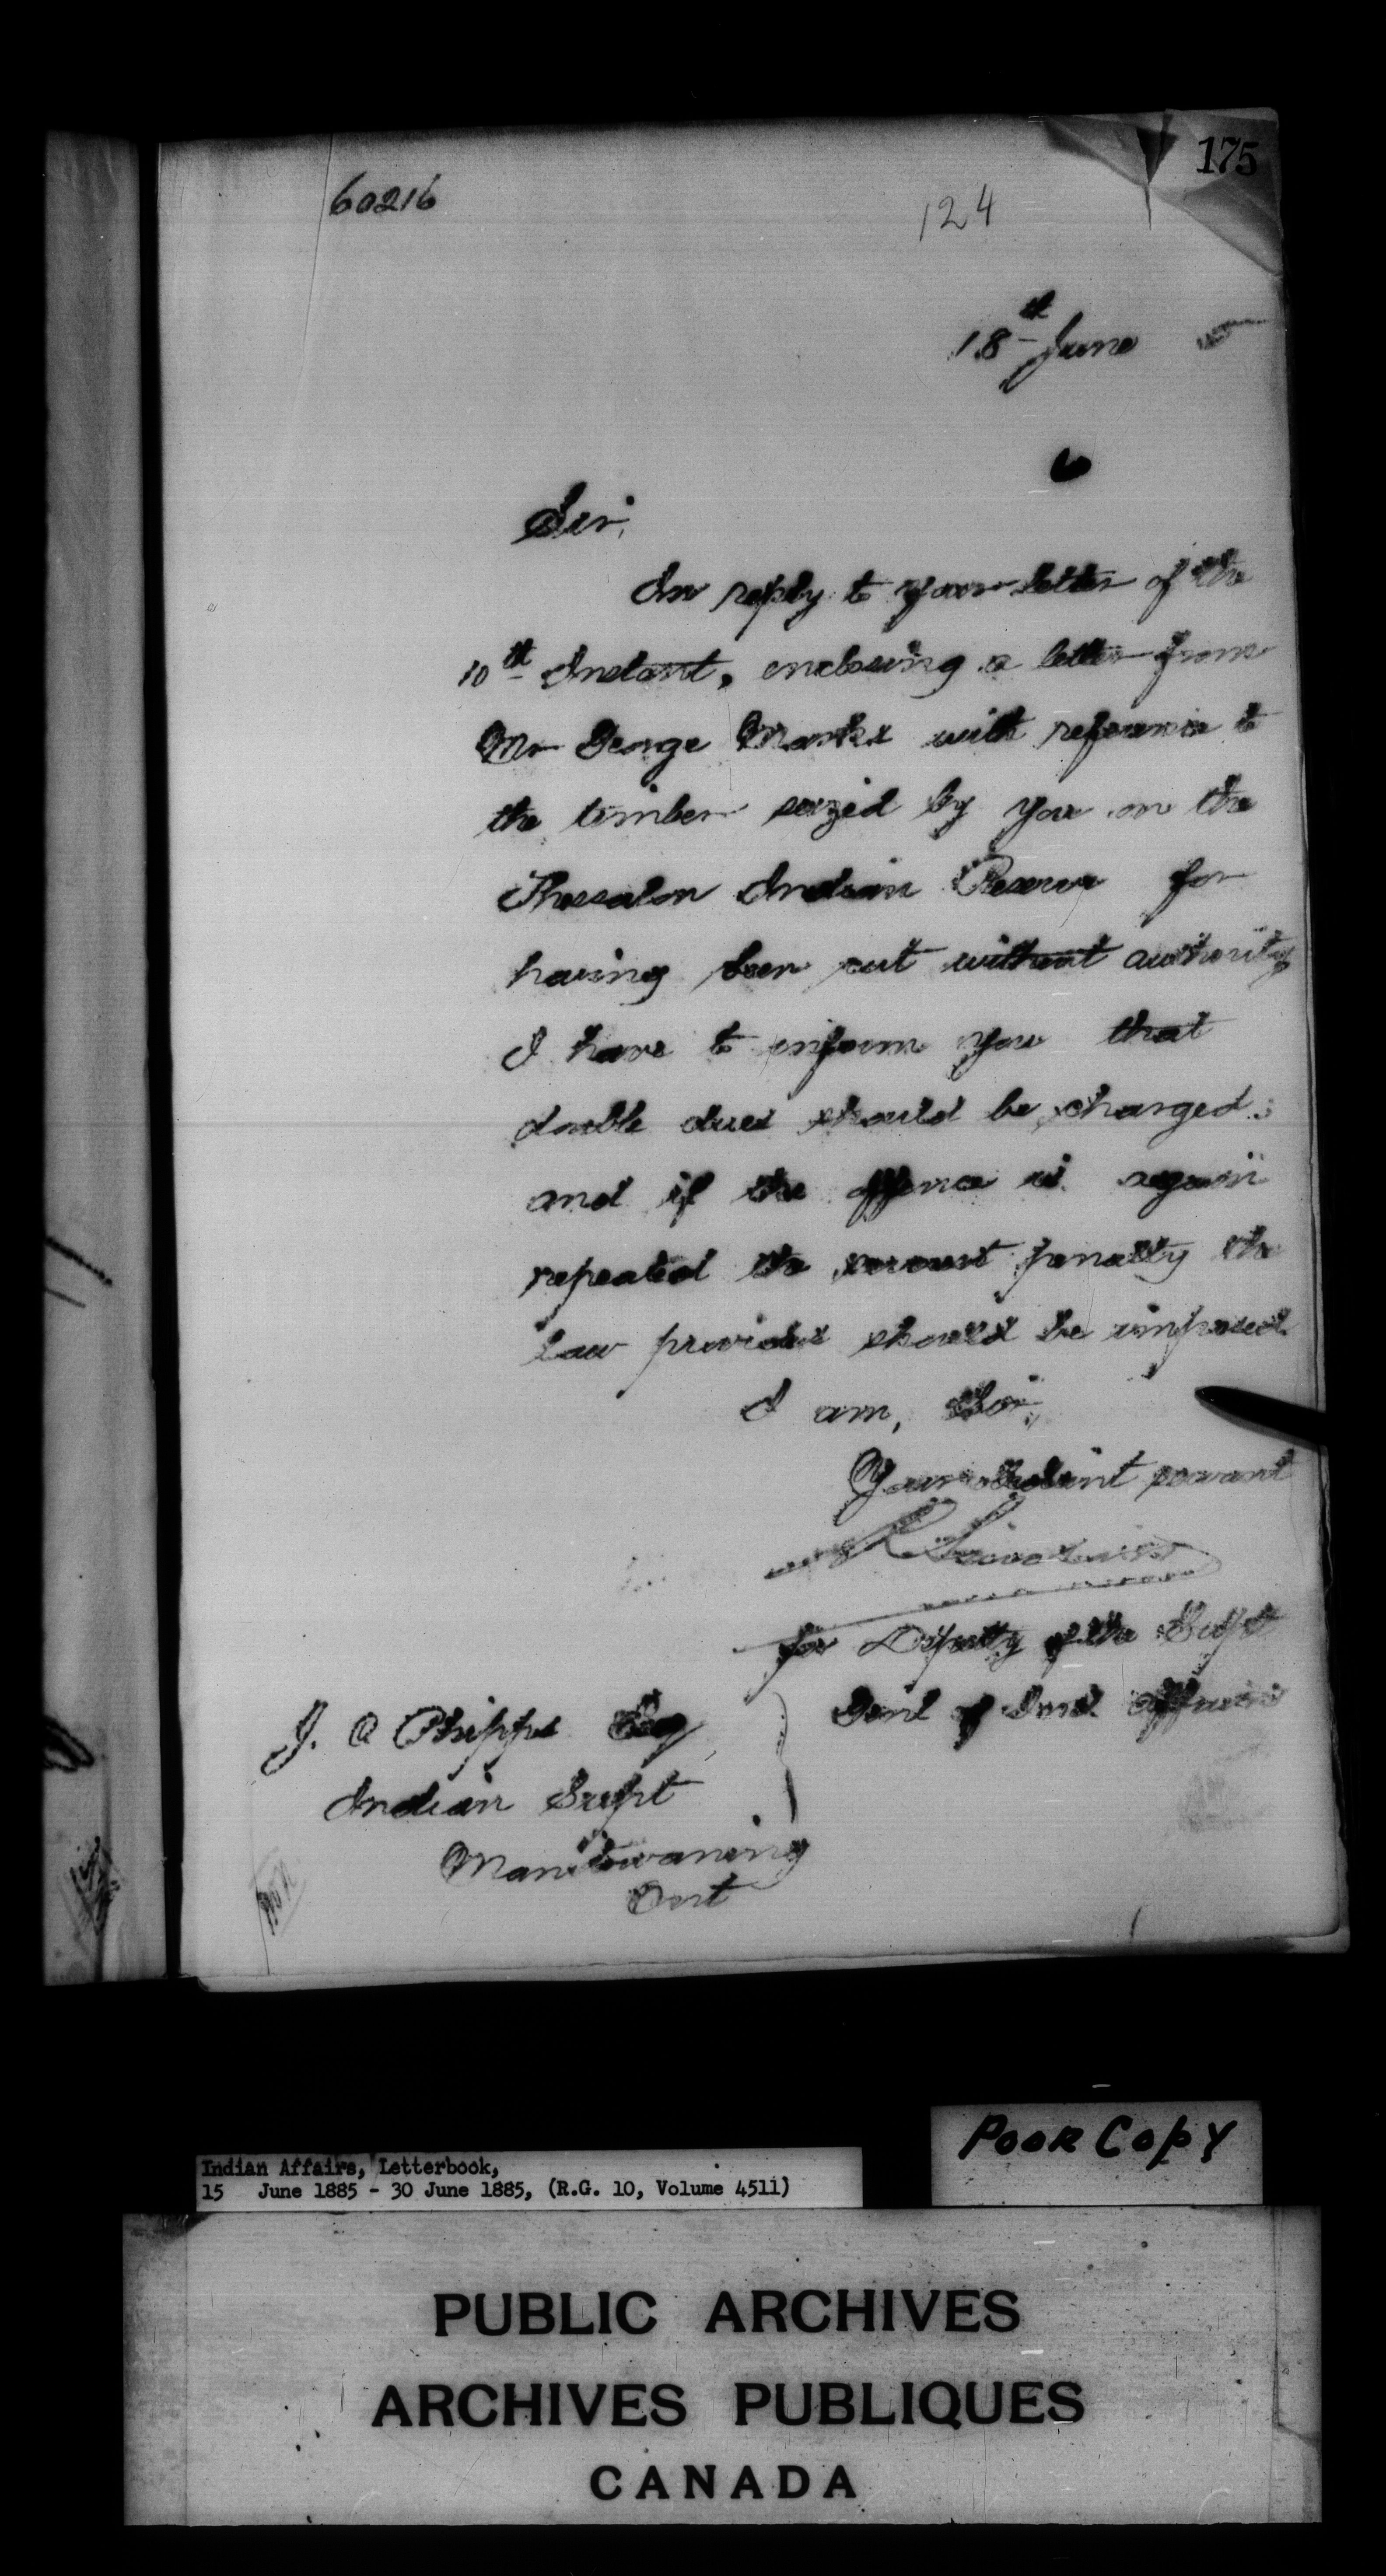 175
60216
124
18th June 5
Sir,
In reply to your letter of the
10th Instant, enclosing a letter from
Mr George Marks with reference to
the timber seized by you on the
Thessalon Indian Reserve for
having been cut without authority
I have to inform you that
double dues should be charged.
and if the offence is again
repeated the severest penalty the
law provides should be imposed.
I am, Sir,
Your obedient servant
for Deputy of the Supt
Genl of Ind Affairs
J. C Phipps Esq
Indian Supt
Manitowaning
Ont
Poor Copy
Indian Affairs, Letterbook,
15 June 1885 - 30 June 1885, (R.G. 10, Volume 4511)
PUBLIC ARCHIVES
ARCHIVES PUBLIQUES
CANADA